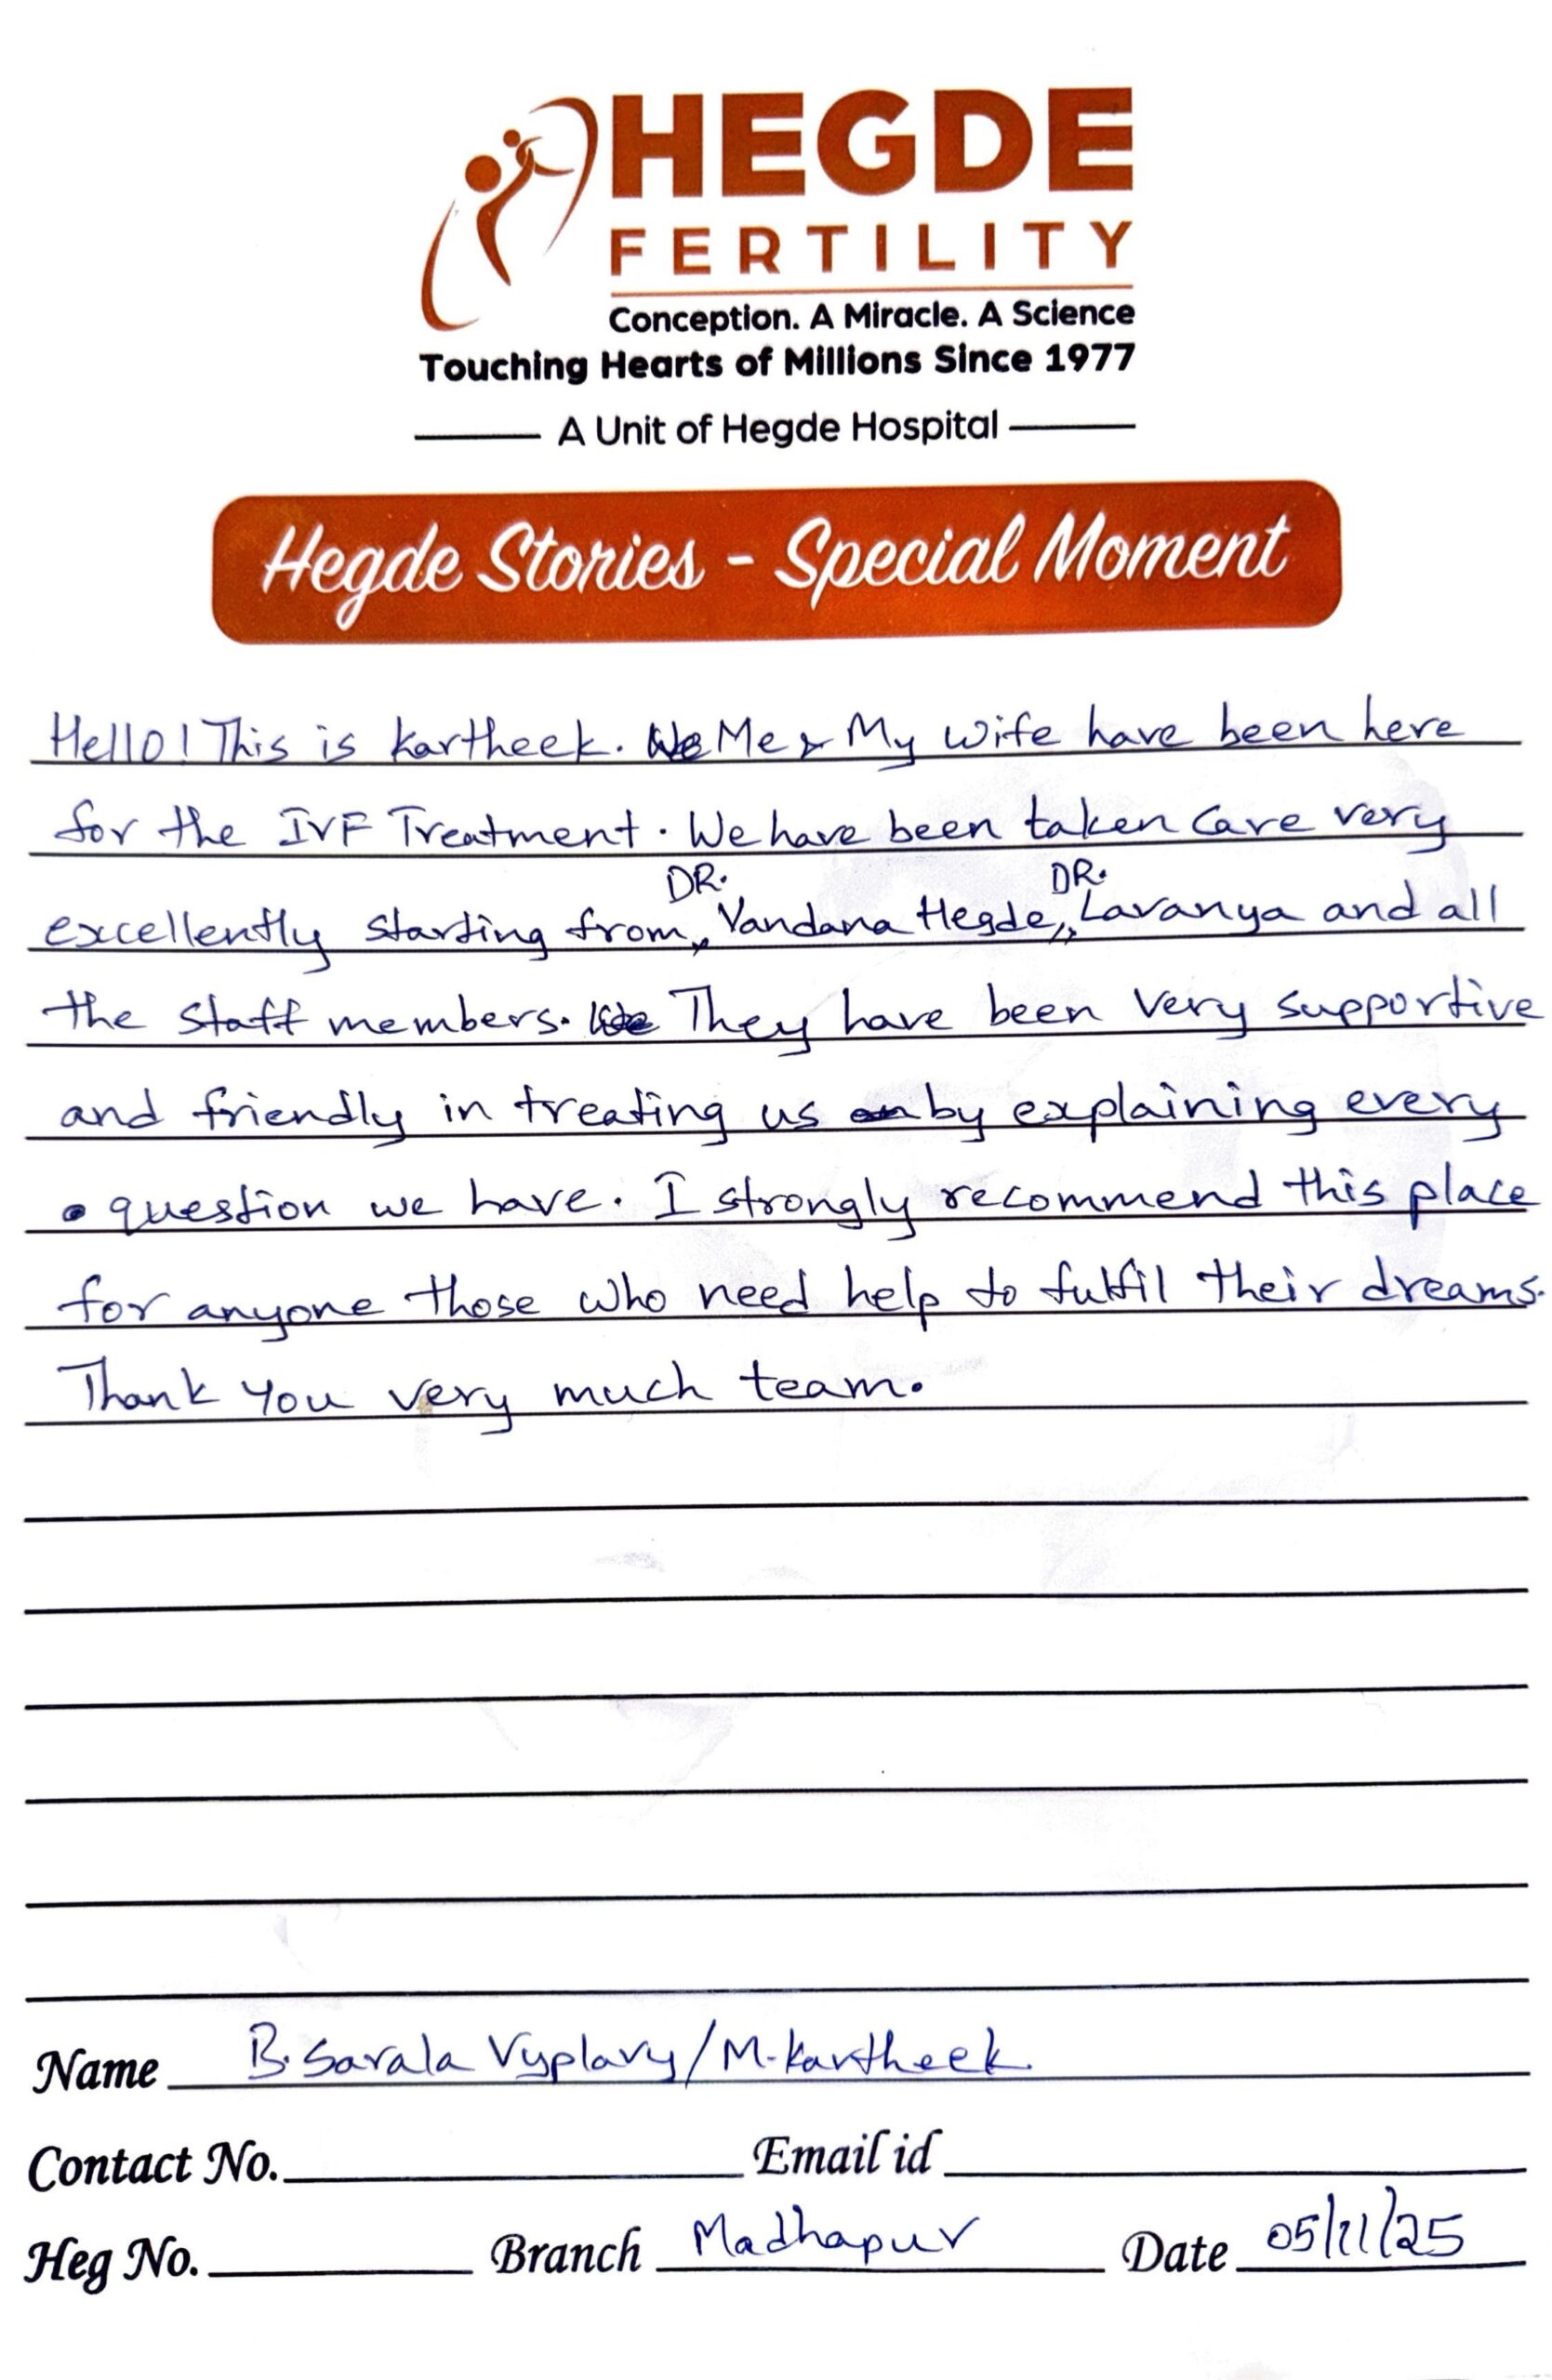 HEGDE
FERTILITY
Conception. A Miracle. A Science
Touching Hearts of Millions Since 1977
A Unit of Hegde Hospital
Hegde Stories - Special Moment
Hello! This is Kartheek. We Me & My wife have been here
for the IVF Treatment. We have been taken care very
DR. DR.
excellently starting from, Vandana Hegde,, Lavanya and all
the staff members. We They have been very supportive
and friendly in treating us on by explaining every
question we have. I strongly recommend this place
for anyone those who need help to fulfil their dreams.
Thank you very much team.
Name B. Sarala Vyplavy/M. Kartheek.
Contact No. Email id
Heg No. Branch Madhapur Date 05/11/25